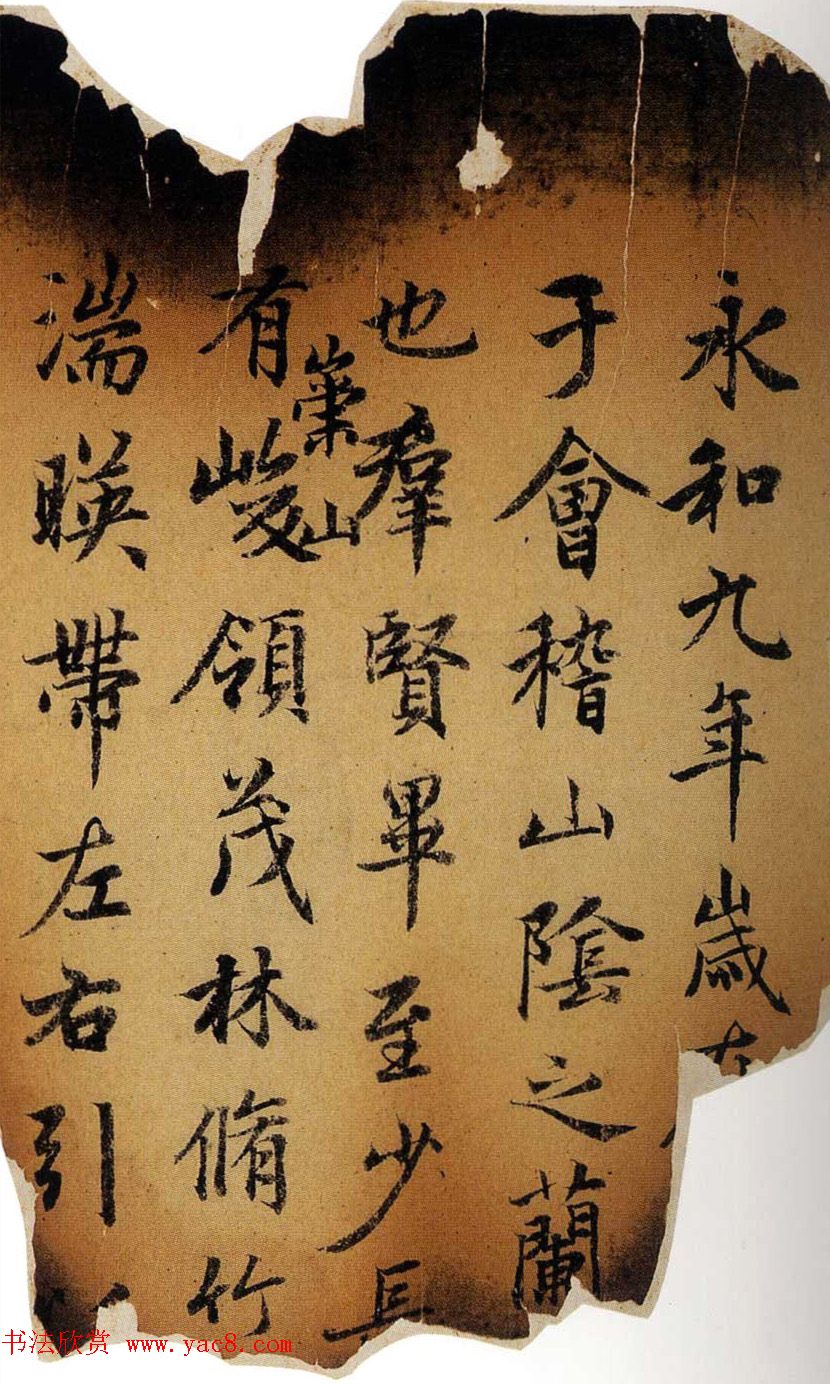 永和九年歲在
于會稽山陰之蘭
也羣賢畢至少長
有崇山峻領茂林脩竹
湍暎帶左右引
书法欣赏 www.yac8.com